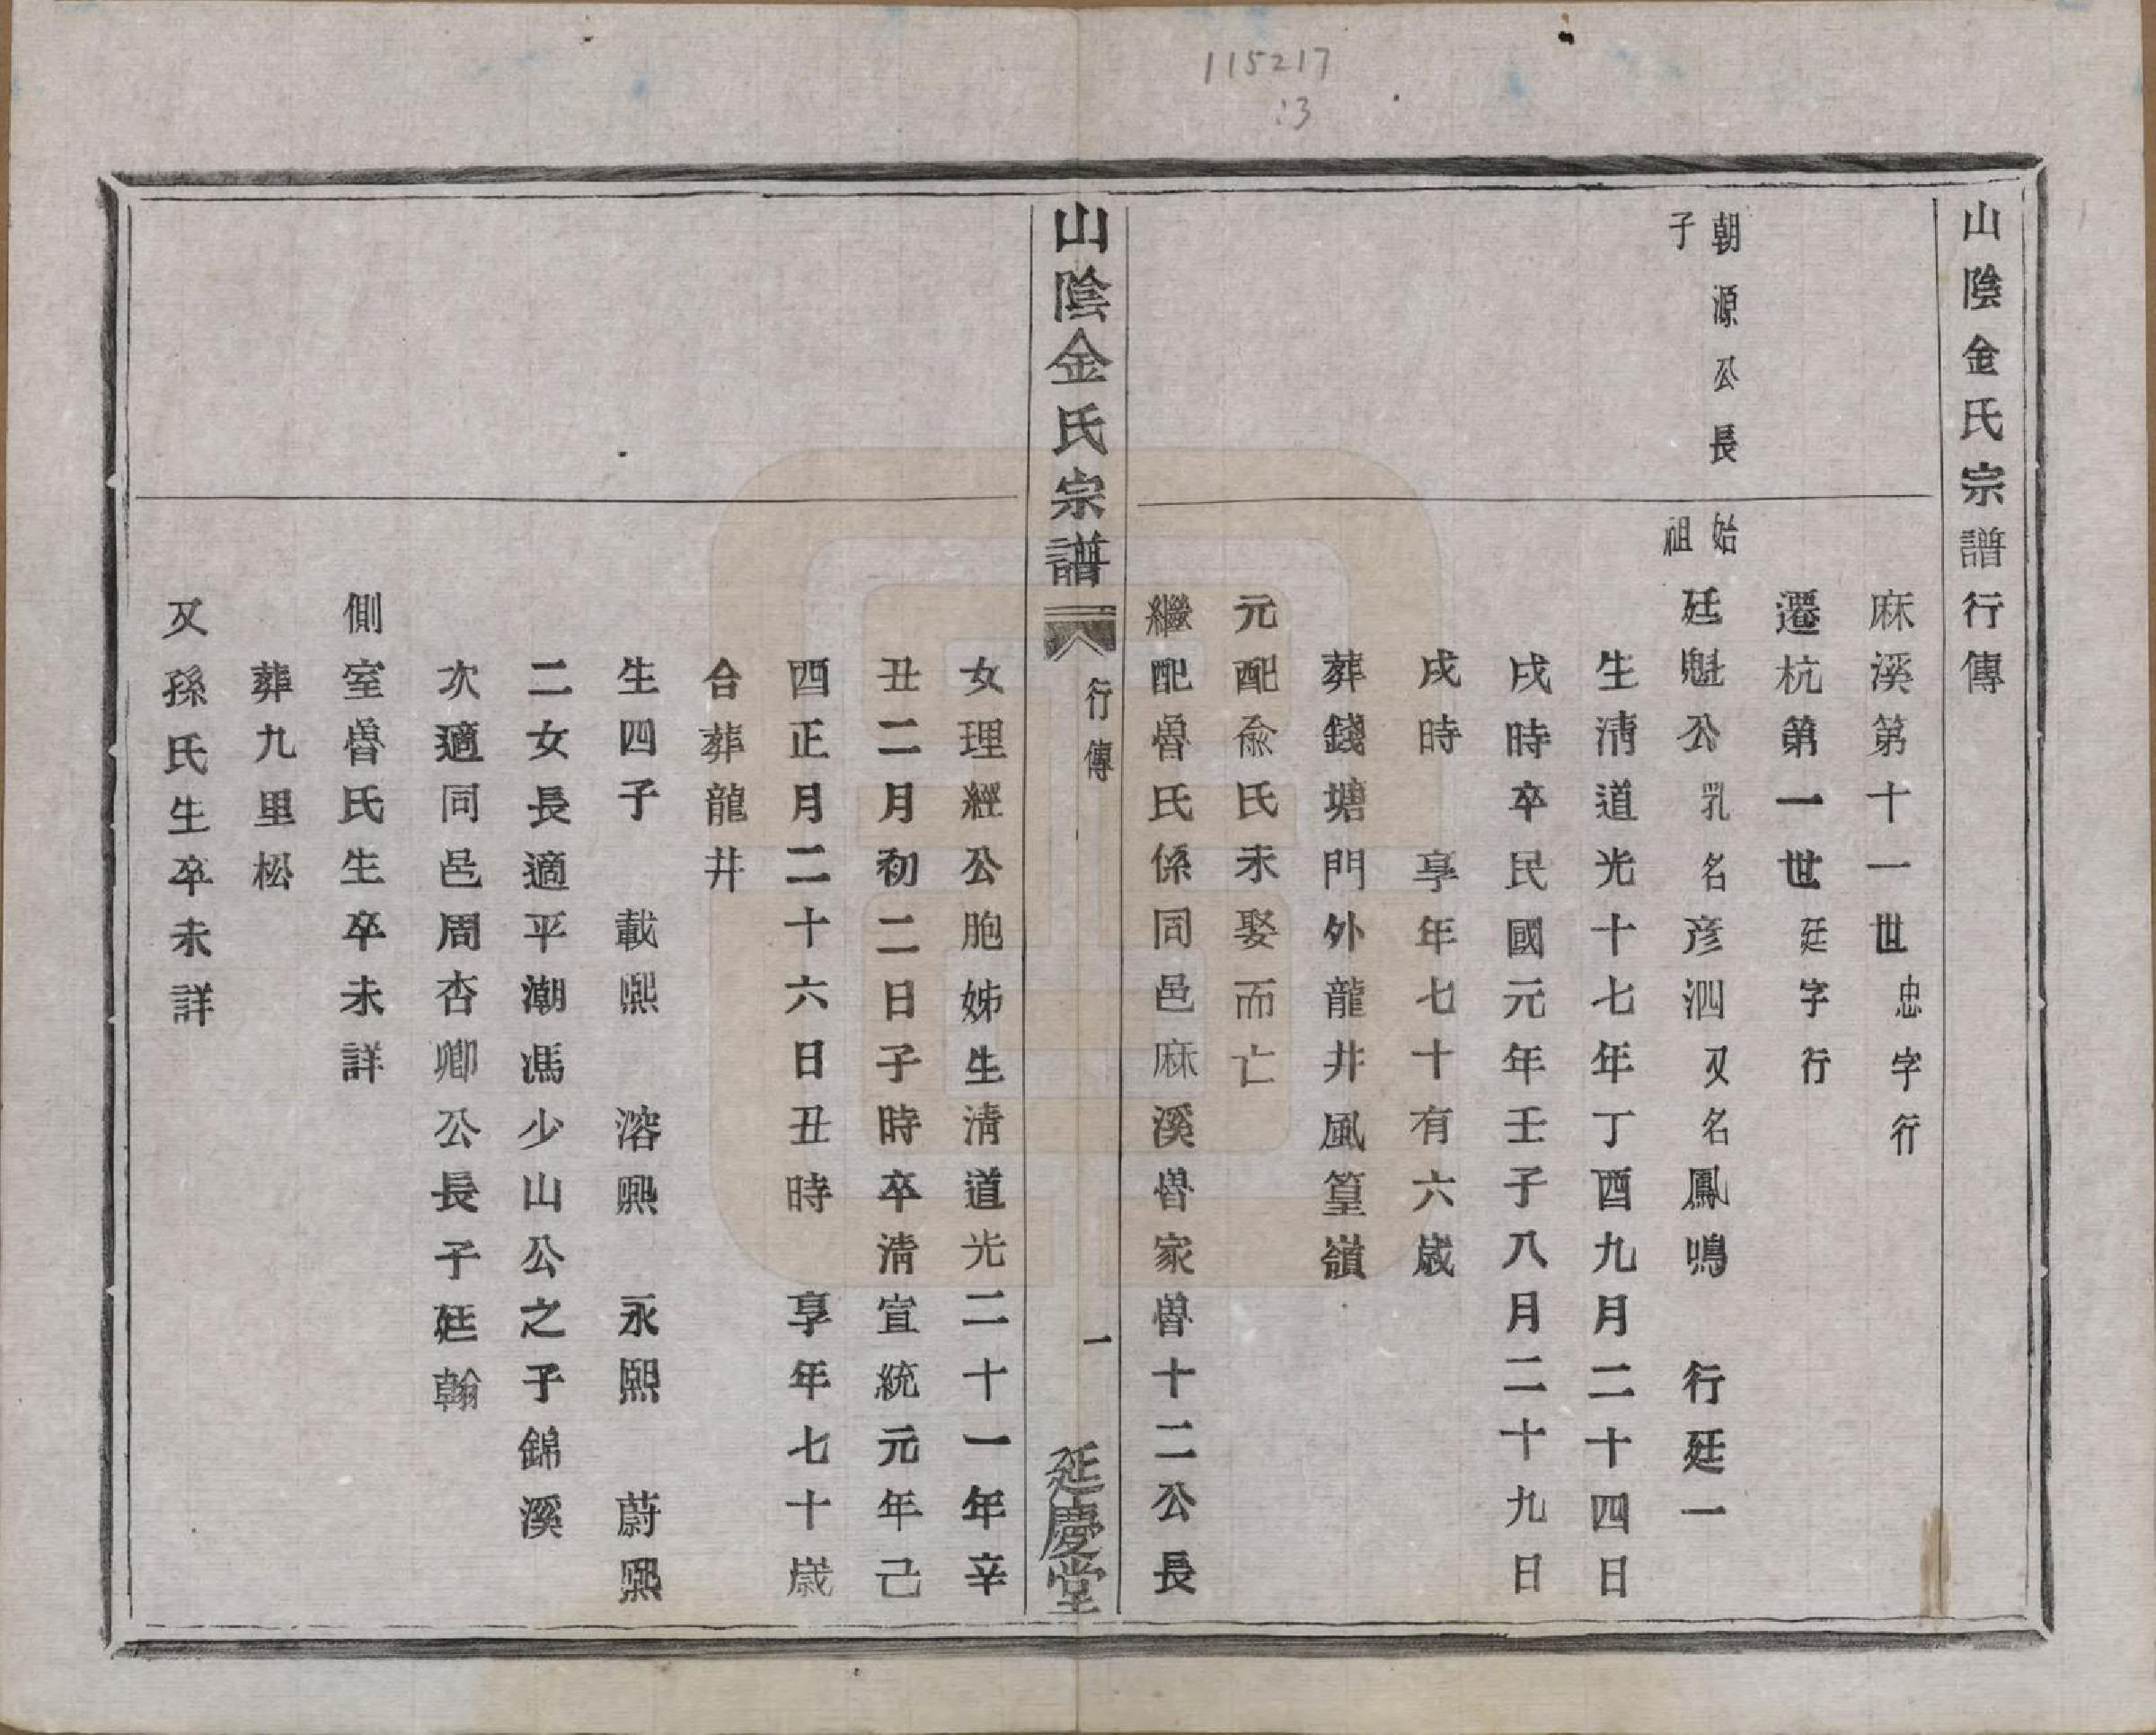 115217
:3
山陰金氏宗譜行傳
麻溪第十一世忠字行
遷杭第一世廷字行
朝源公長子
始祖廷魁公乳名彦泗又名鳳鳴 行廷一
生清道光十七年丁酉九月二十四日
戌時卒民國元年壬子八月二十九日
戌時 享年七十有六歲
葬錢塘門外龍井風篁嶺
元配俞氏未娶而亡
繼配魯氏係同邑麻溪魯家魯十二公長
山陰金氏宗譜 行傳 一 延慶堂
女理經公胞姊生清道光二十一年辛
丑二月初二日子時卒清宣統元年己
酉正月二十六日丑時 享年七十歲
合葬龍井
生四子 載熙 溶熙 永熙 蔚熙
二女長適平潮馮少山公之子錦溪
次適同邑周杏卿公長子廷翰
側室魯氏生卒未詳
葬九里松
又孫氏生卒未詳